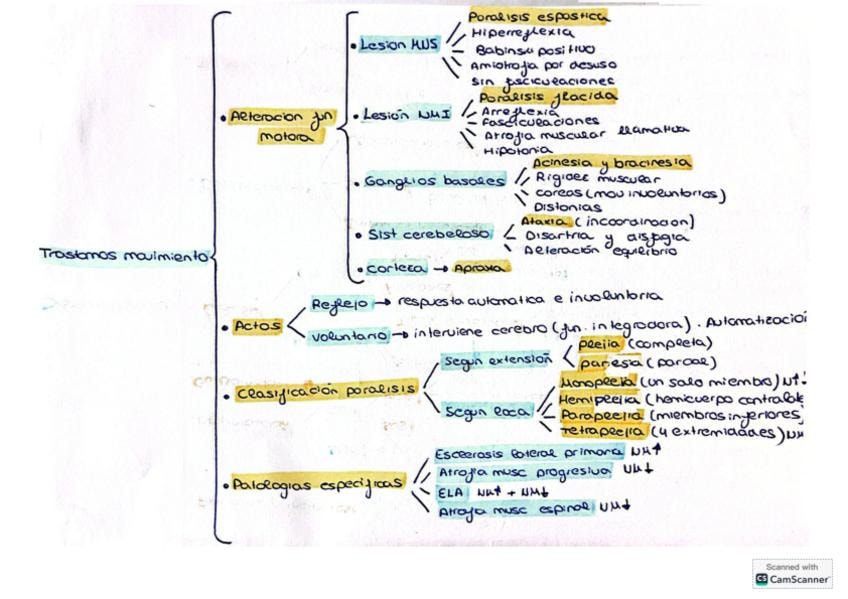 Trastornos movimiento
• Alteracion fun motora
• Lesion MNS
Paralisis espastica
Hiperreflexia
Babinski positivo
Amiotrofia por desuso
Sin fasciculaciones
• Lesión NMI
Paralisis flacida
Arreflexia
Fasciculaciones
Atrofia muscular llamativa
Hipotonia
• Ganglios basales
Acinesia y bracinesia
Rigidez muscular
coreas (mov involuntarios)
Distonias
• Sist cerebeloso
Ataxia (incoordinacion)
Disartria y disfagia
Alteración equilibrio
• corteza → Apraxia
• Actos
Reflejo → respuesta automatica e involuntaria
Voluntario → interviene cerebro (fun. integradora). Automatizació
• Clasificación paralisis
Segun extensión
plejia (completa)
paresia (parcial)
Segun loca
Monoplejia (un solo miembro)
Hemiplejia (hemicuerpo contralat
Paraplejia (miembros inferiores)
Tetraplejia (4 extremidades)
• Patologias especificas
Esclerosis lateral primaria NM↑
Atrofia musc progresiva NM↓
ELA NM↑ + NM↓
Atrofia musc espinal NM↓
Scanned with
CS CamScanner